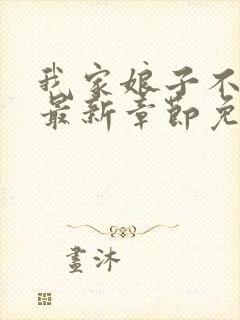 我家娘子不
最新章節免
畫沐